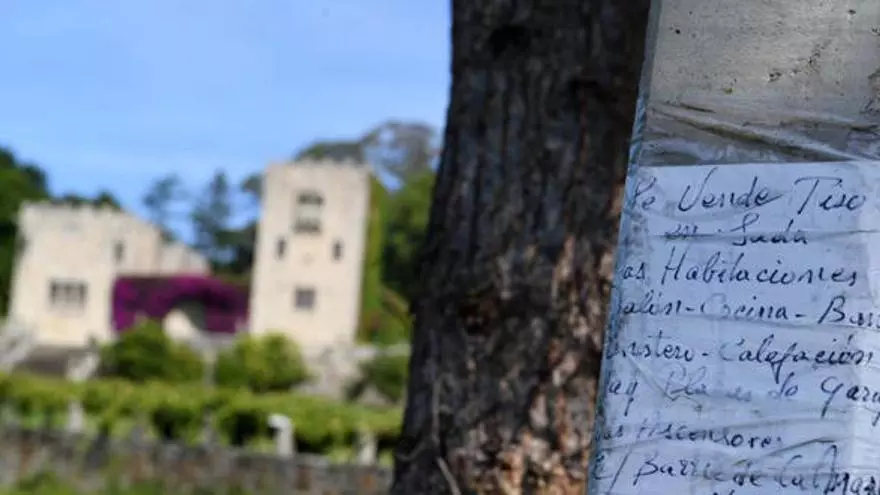 Se Vende Piso
en Sada
as Habitaciones
alón-Cocina-Ba
Calefación
ay Plazas de Gara
Ascensores
C/ Barrie de